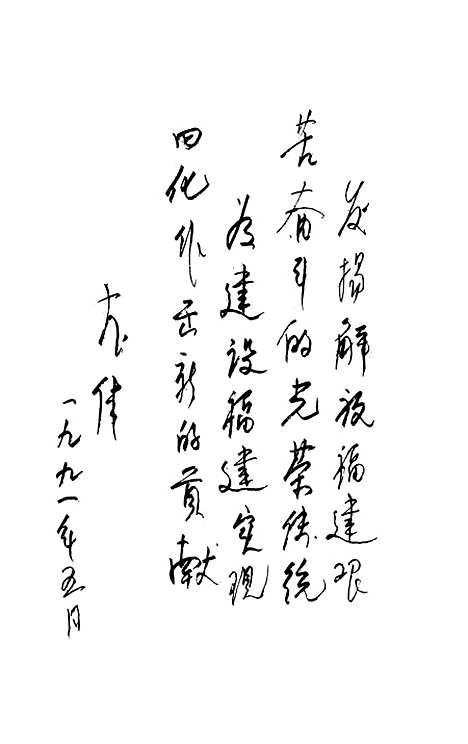 发扬解放福建艰
苦奋斗的光荣传统
为建设福建实现
四化作出新的贡献
一九九一年五月